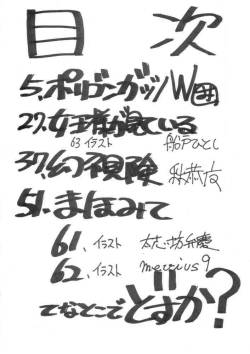 目 次
5. ポリゴンガッツ/W団
27. 女王様が見ている
63 イラスト 船戸ひとし
37. 幻視険
51. まほみて
61. イラスト 太志坊弁慶
62. イラスト mercius 9
てなとこでどすか?